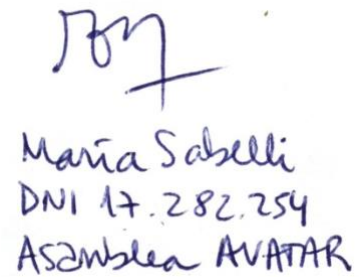 María Sabelli
DNI 17.282.254
Asamblea AVATAR